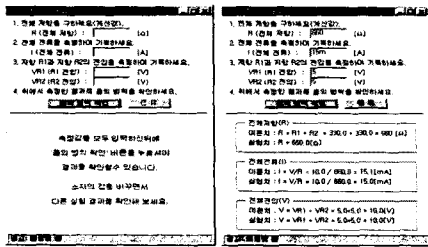 1. 전체 저항을 구하세요(계산값).
R (전체 저항) : [Ω]
2. 전체 전류를 측정하여 기록하세요.
I (전체 전류) : [A]
3. 저항 R1과 저항 R2의 전압을 측정하여 기록하세요.
VR1 (R1 전압) : [V]
VR2 (R2 전압) : [V]
4. 위에서 측정한 결과로 옴의 법칙을 확인하세요.
측정값을 모두 입력하신뒤에
옴의 법칙 확인 버튼을 누르셔야
결과를 확인할수 있습니다.
소자의 값을 바꾸면서
다른 실험 결과를 확인해 보세요.
1. 전체 저항을 구하세요(계산값).
R (전체 저항) : 660 [Ω]
2. 전체 전류를 측정하여 기록하세요.
I (전체 전류) : 15m [A]
3. 저항 R1과 저항 R2의 전압을 측정하여 기록하세요.
VR1 (R1 전압) : 5 [V]
VR2 (R2 전압) : 5 [V]
4. 위에서 측정한 결과로 옴의 법칙을 확인하세요.
전체저항(R)
이론치 : R = R1 + R2 = 330.0 + 330.0 = 660 [Ω]
실험치 : R = 660.0[Ω]
전체전류(I)
이론치 : I = V/R = 10.0 / 660.0 = 15.1[mA]
실험치 : I = V/R = 10.0 / 660.0 = 15.0[mA]
전체전압(V)
이론치 : V = VR1 + VR2 = 5.0+5.0 = 10.0[V]
실험치 : V = VR1 + VR2 = 5.0+5.0 = 10.0[V]